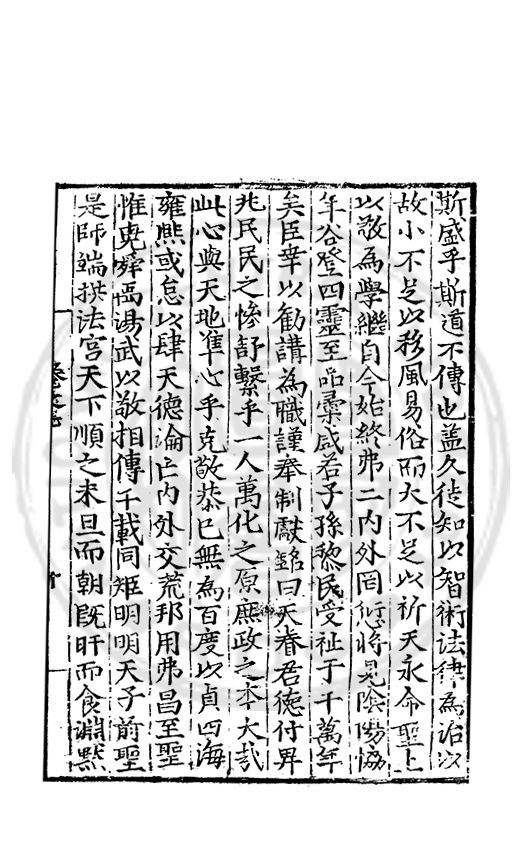 斯盛乎斯道不傳也盖久徒知以智術法律為治以
故小不足以移風易俗而大不足以祈天永命聖上
以敬為學繼自今始終弗二内外罔愆將見隂陽恊
年谷登四靈至品彚咸若子孫黎民受祉于千萬年
矣臣幸以勸講為職謹奉制獻銘曰天眷君徳付畀
兆民民之慘舒繫乎一人萬化之原庶政之本大哉
此心與天地凖心乎克敬恭已無為百度以貞四海
雍熈或怠以肆天德論亡内外交荒邦用弗昌至聖
惟堯舜禹湯武以敬相傳千載同矩明明天子前聖
是師端拱法宫天下順之未旦而朝既旰而食淵黙